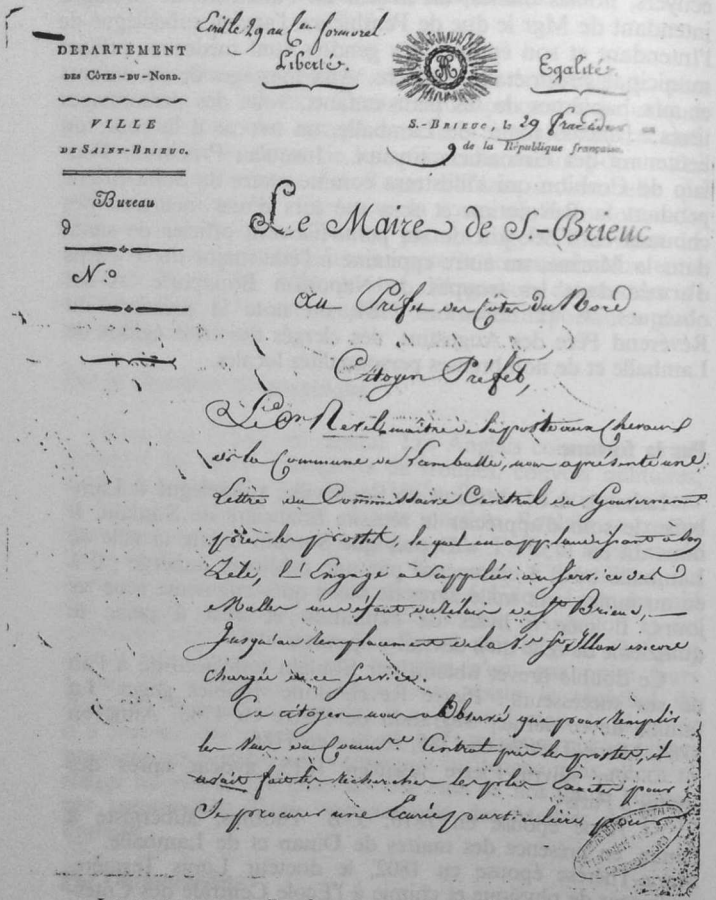 Ecrit le 29 au
DEPARTEMENT
DES CÔTES-DU-NORD.
VILLE
DE SAINT-BRIEUC.
Bureau
d
N.º
Liberté.
Egalité.
S.-BRIEUC, le 29 fructidor an
9 de la République française.
Le Maire de S.-Brieuc
Au Préfet des Côtes du Nord
Citoyen Préfet,
Le Cen Revel, maître de la poste aux Chevaux
de la Commune de Lamballe, nous a présenté une
Lettre du Commissaire Central du Gouvernement
près les postes, lequel en applaudissant à son
Zèle, l'Engage à Suppléer au Service des
Malles au défaut du Relais de St Brieuc,
Jusqu'au remplacement de la Ve St Illan encore
chargée de ce Service.
Ce citoyen nous a Observé que pour remplir
les vues du Commre Central près les postes, il
avait fait les recherches les plus Exactes pour
Se procurer une Ecurie particulière pour